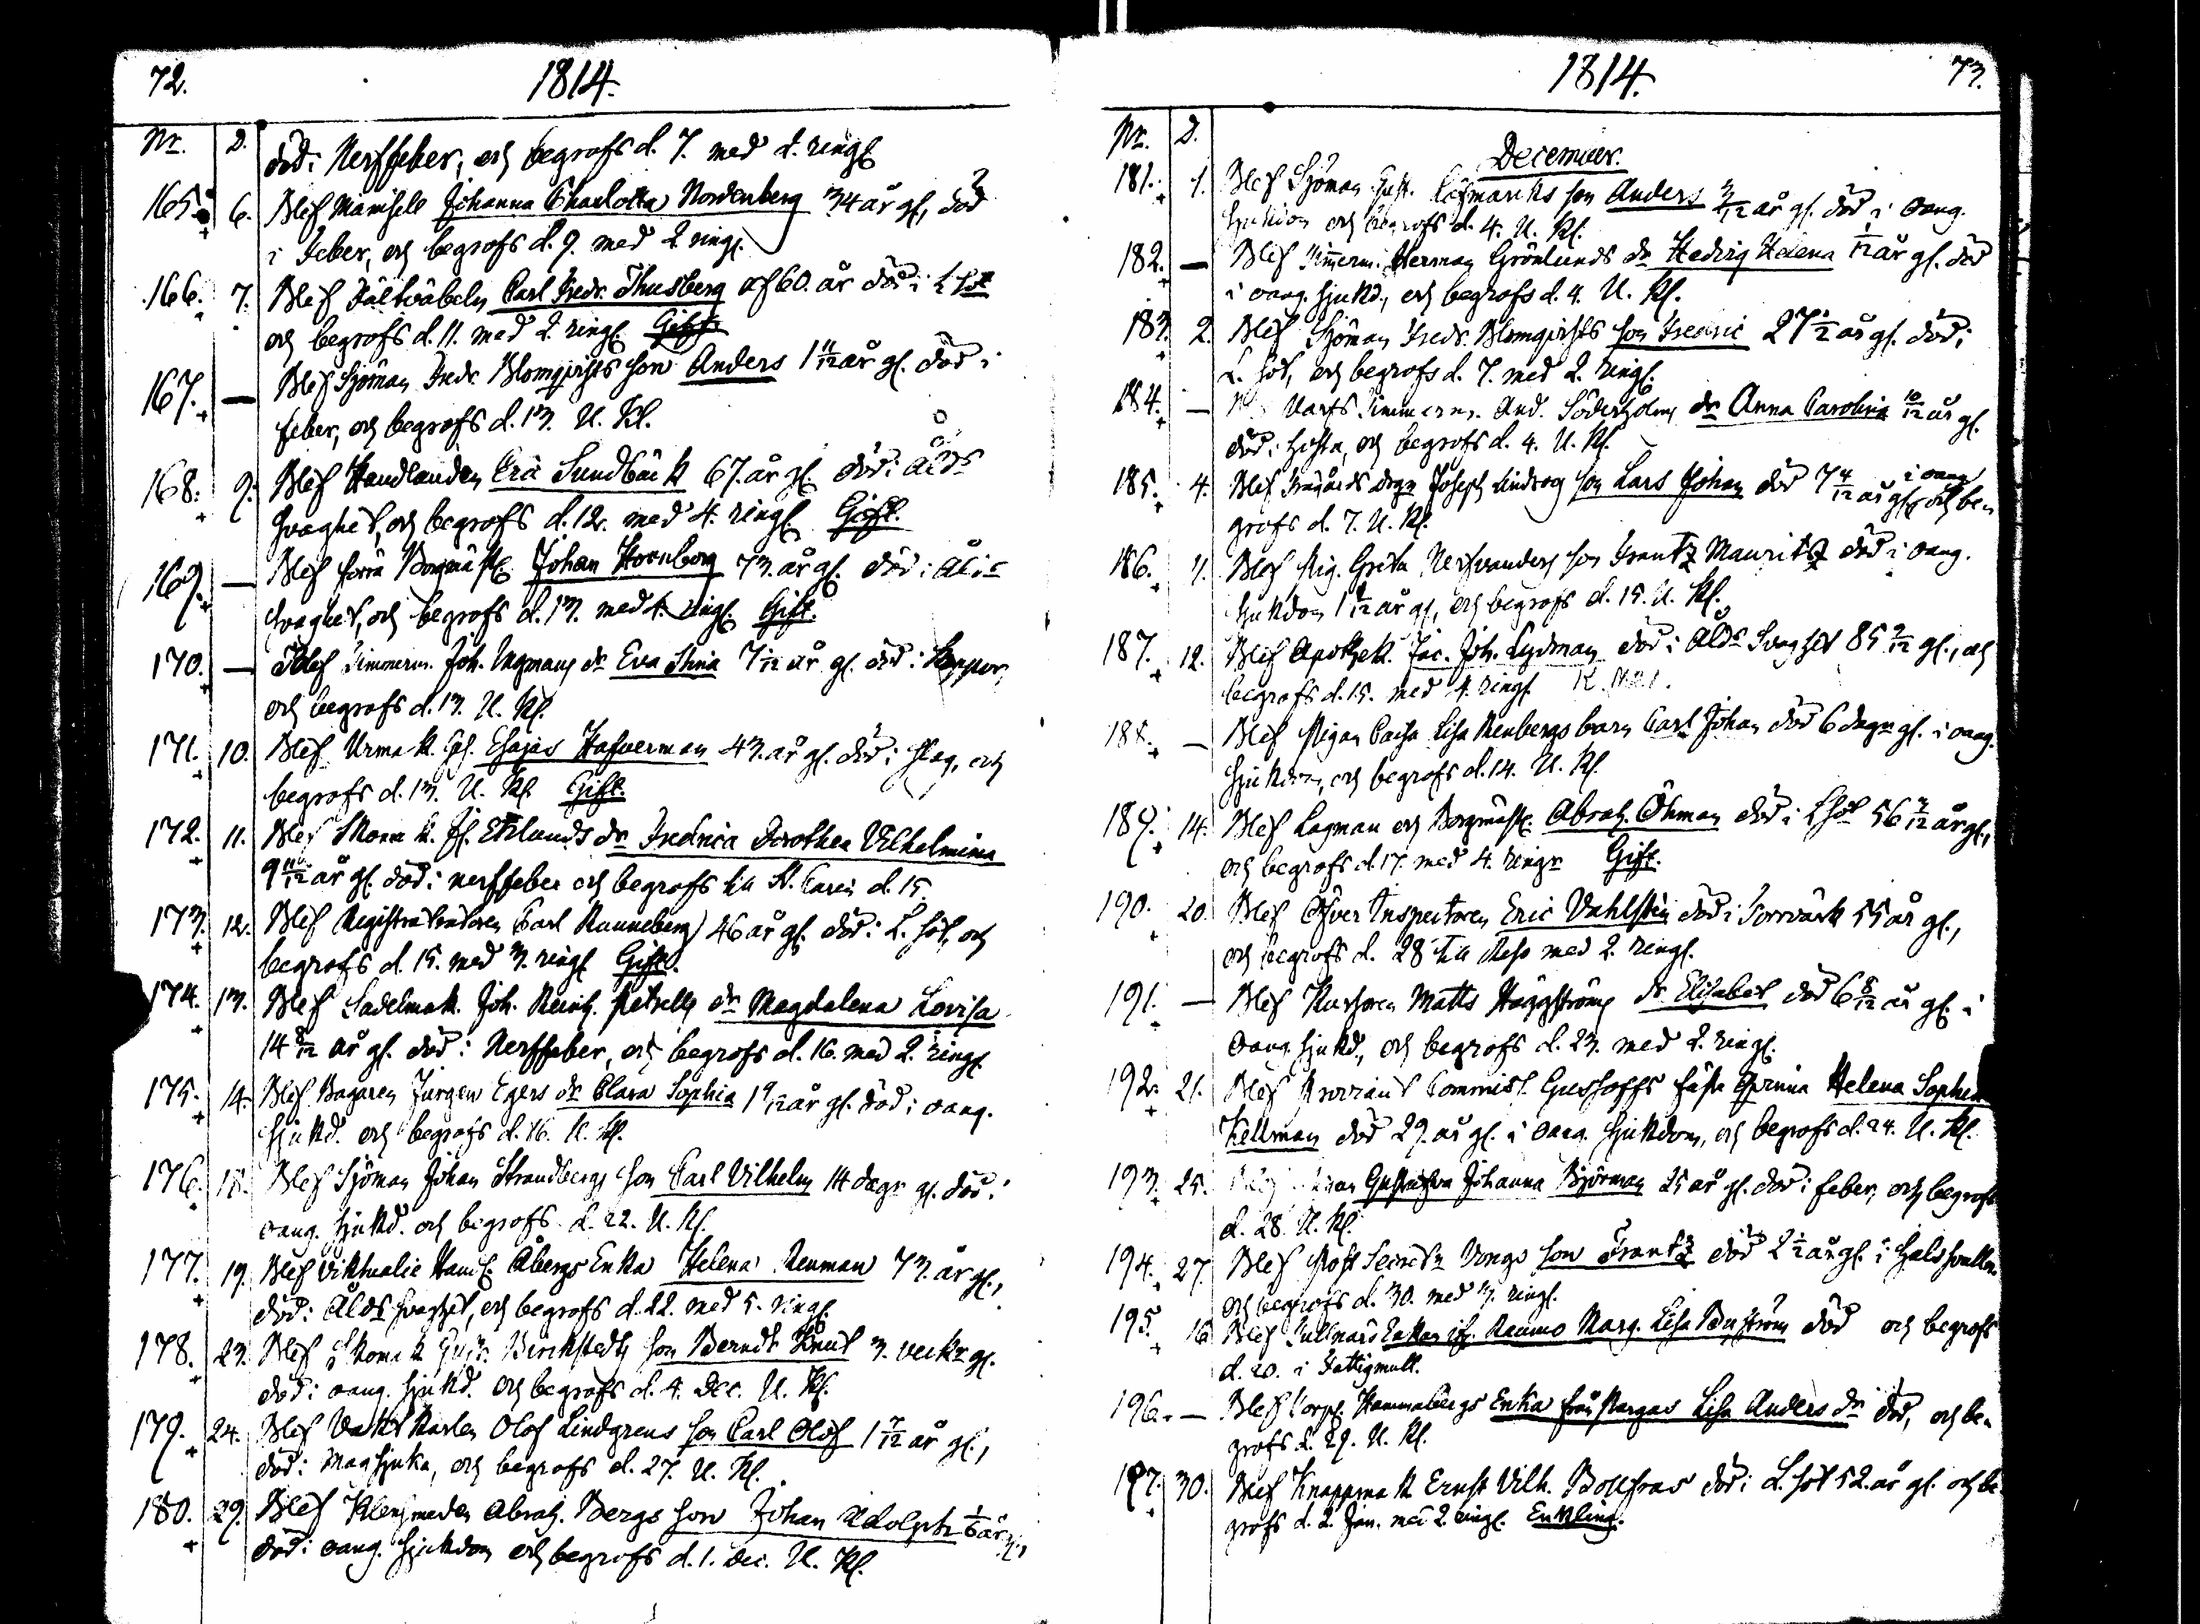 72.
1814.
Nr. D.
död i Nerffeber, och begrofs d. 7. med 2. ringr
165. 6. Blef Mamsell Johanna Charlotta Nordenberg 34 år gl, död
i Feber, och begrofs d. 9. med 2 ringr.
166. 7. Blef Fältväbeln Carl Fredr. Thusberg af 60. år död i L. sot
och begrofs d. 11. med 2. ringr. Gift
167. — Blef Sjöman Fredr. Blomqvists son Anders 1 11/12 år gl. död i
feber, och begrofs d. 13. U. Kl.
168. 9. Blef Handlanden Eric Sundbäck 67. år gl. död i Ålds
svaghet, och begrofs d. 12. med 4. ringr. Gift.
169. — Blef förra Borgmäst. Johan Hornborg 73. år gl. död i Ålds
svaghet, och begrofs d. 13. med 4. ringr. Gift.
170. — Blef Timmerm. Joh. Ingmans dr Eva Stina 7/12 år gl. död i Koppor,
och begrofs d. 13. U. Kl.
171. 10. Blef Urmak. Gs. Esajas Hafverman 43. år gl. död i slag, och
begrofs d. 13. U. Kl. Gift.
172. 11. Blef Skom k. Ekelunds dr Fredrica Dorothea Vilhelmina
9 10/12 år gl. död i nerffeber och begrofs till St. Carin d. 15.
173. 12. Blef Registratoren Carl Runneberg 46 år gl. död i L. sot, och
begrofs d. 15. med 3. ringr Gift.
174. 13. Blef Sadelmak. Joh. Reinh. Petrells dr Magdalena Lovisa
14 8/12 år gl. död i Nerffeber, och begrofs d. 16. med 2. ringr.
175. 14. Blef Bagaren Jürgen Egers dr Clara Sophia 1 9/12 år gl. död i oang.
sjukd. och begrofs d. 16. U. Kl.
176. 18. Blef Sjöman Johan Strandbergs son Carl Vilhelm 14 dagr gl. död i
oang. sjukd. och begrofs d. 22. U. Kl.
177. 19. Blef Viktualie Handl. Åbergs Enka Helena Renman 73. år gl.,
död i Ålds svaghet, och begrofs d. 22. med 5. ringr.
178. 23. Blef Skomak Gust. Berckstedts son Berndt Knut 3. veckr gl.
död i oang. sjukd. och begrofs d. 4. Dec. U. Kl.
179. 24. Blef Vaktkarlen Olof Lindgrens son Carl Olof 1 7/12 år gl.,
död i Magsjuka, och begrofs d. 27. U. Kl.
180. 29. Blef Klensmeden Abrah. Bergs son Johan Adolph 1/6 år gl.,
död i oang. sjukdom och begrofs d. 1. Dec. U. Kl.
1814.
73.
Nr. D.
December.
181. 1. Blef Sjöman Gust. Löfmarcks son Anders 3/12 år gl. död i oang.
sjukdom och begrofs d. 4. U. Kl.
182. — Blef Timerm. Herman Grönlunds dr Hedvig Helena 1/12 år gl. död
i oang. sjukd., och begrofs d. 4. U. Kl.
183. 2. Blef Sjöman Fredr. Blomqvists son Fredric 27 1/2 år gl. död i
L. sot, och begrofs d. 7. med 2. ringr.
184. — Varfs Timmerm. And. Söderholms dr Anna Carolina 10/12 år gl.
död i hosta, och begrofs d. 4. U. Kl.
185. 4. Blef Trägårds drgn Joseph Lindroos son Lars Johan död 7 4/12 år gl. i oang och be-
grofs d. 7. U. Kl.
186. 7. Blef Pig. Greta Nervanders son Frantz Mauritz död i oang.
sjukdom 1 8/12 år gl, och begrofs d. 15. U. Kl.
187. 12. Blef Apothek. Jac. Joh. Lydman död i Ålds Svaghet 85 9/12 gl., och
begrofs d. 15. med 4. ringr.
188. — Blef Pigan Caisa Lisa Renbergs barn Carl Johan död 6 dagr gl. i oang.
sjukdom, och begrofs d. 14. U. Kl.
189. 14. Blef Lagman och Borgmäst. Abrah. Öhman död i L sot 56 3/12 år gl.,
och begrofs d. 17. med 4. ringr Gift.
190. 20. Blef Öfver Inspectoren Eric Vahlstén död i Torrvärk 55 år gl.,
och begrofs d. 28 till Reso med 2. ringr.
191. — Blef Kusken Matts Häggströms dr Elisabet död 6 8/12 år gl. i
oang. sjukd., och begrofs d. 23. med 2. ringr.
192. 21. Blef Proviant Commiss. Gushoffs fästeqvinna Helena Sophia
Kellman död 29. år gl. i oang. sjukdom, och begrofs d. 24. U. Kl.
193. 25. Gustafva Johanna Björman 25 år gl. död i feber, och begrofs
d. 28. U. Kl.
194. 27. Blef Post Secret. Vongs son Frantz död 2 1/2 år gl. i halssvullen
och begrofs d. 30. med 3. ringr.
195. 16. Blef Enkan ifr. Raumo Marg. Lisa Byström död och begrofs
d. 20. i Fattigmull.
196. — Blef Corpr. Hammarbergs Enka från Pargas Lisa Anders dr död, och be-
grofs d. 29. U. Kl.
197. 30. Blef Knappmak Ernst Vilh. Bollfras död i L. sot 52. år gl. och be-
grofs d. 2. Jan. med 2. ringr. Enkling.